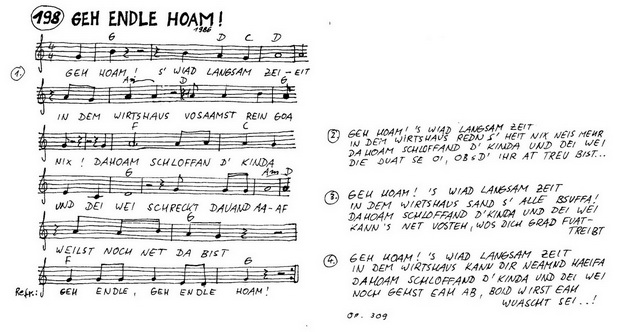 198 GEH ENDLE HOAM!
1986
G D C D
1. GEH HOAM! S' WIAD LANGSAM ZEI-EIT
Am D G
IN DEM WIRTSHAUS VOSAAMST REIN GOA
F C
NIX! DAHOAM SCHLOFFAN D' KINDA
G Am D
UND DEI WEI SCHRECKT DAUAND AA-AF
G
WEILST NOCH NET DA BIST
F G
Refr.: GEH ENDLE, GEH ENDLE HOAM!
2. GEH HOAM! 'S WIAD LANGSAM ZEIT
IN DEM WIRTSHAUS REDN S' HEIT NIX NEIS MEHR
DAHOAM SCHLOFFAND D' KINDA UND DEI WEI
DIE DUAT SE OI, OBSD' IHR AT TREU BIST...
3. GEH HOAM! 'S WIAD LANGSAM ZEIT
IN DEM WIRTSHAUS SAND S' ALLE BSUFFA!
DAHOAM SCHLOFFAND D'KINDA UND DEI WEI
KANN'S NET VOSTEH, WOS DICH GRAD FUAT-
TREIBT
4. GEH HOAM! 'S WIAD LANGSAM ZEIT
IN DEM WIRTSHAUS KANN DIR NEAMND HAEIFA
DAHOAM SCHLOFFAND D'KINDA UND DEI WEI
NOCH GEHST EAH AB, BOLD WIRST EAH
WUASCHT SEI..!
OP. 309